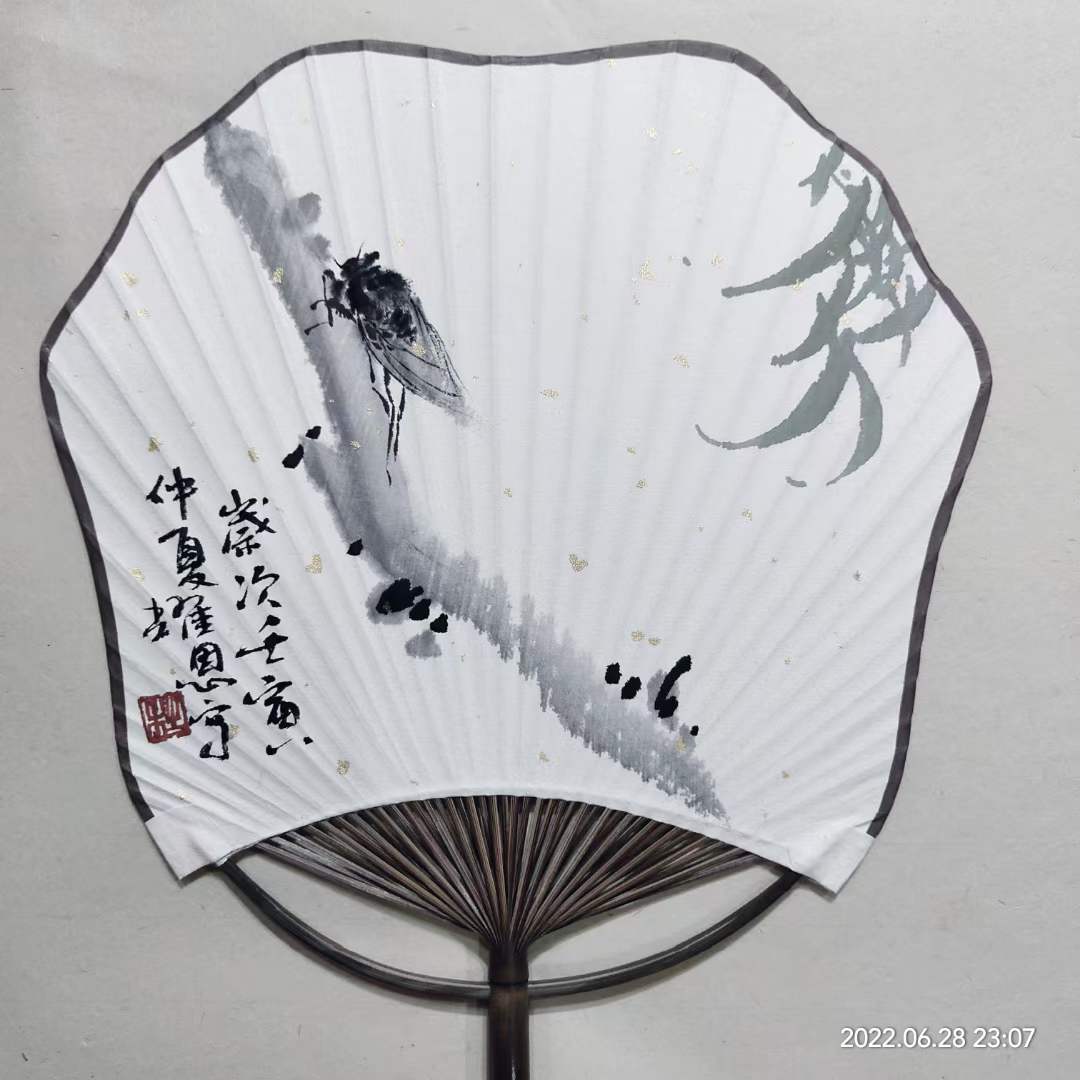 歲次壬寅
仲夏耀恩寫
2022.06.28 23:07